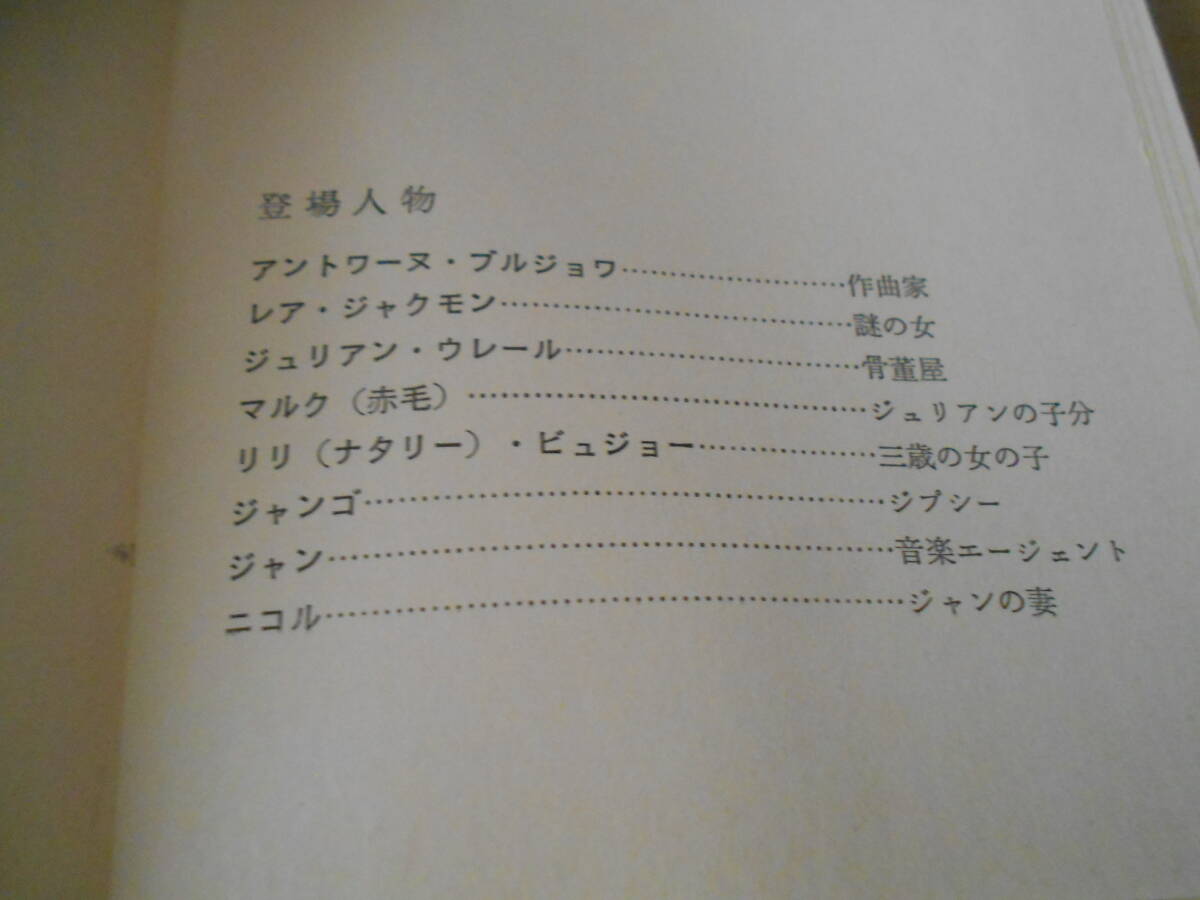 登場人物
アントワーヌ・ブルジョワ……………………作曲家
レア・ジャクモン………………………………謎の女
ジュリアン・ウレール…………………………骨董屋
マルク（赤毛）…………………………………ジュリアンの子分
リリ（ナタリー）・ビュジョー………………三歳の女の子
ジャンゴ…………………………………………ジプシー
ジャン……………………………………………音楽エージェント
ニコル……………………………………………ジャンの妻